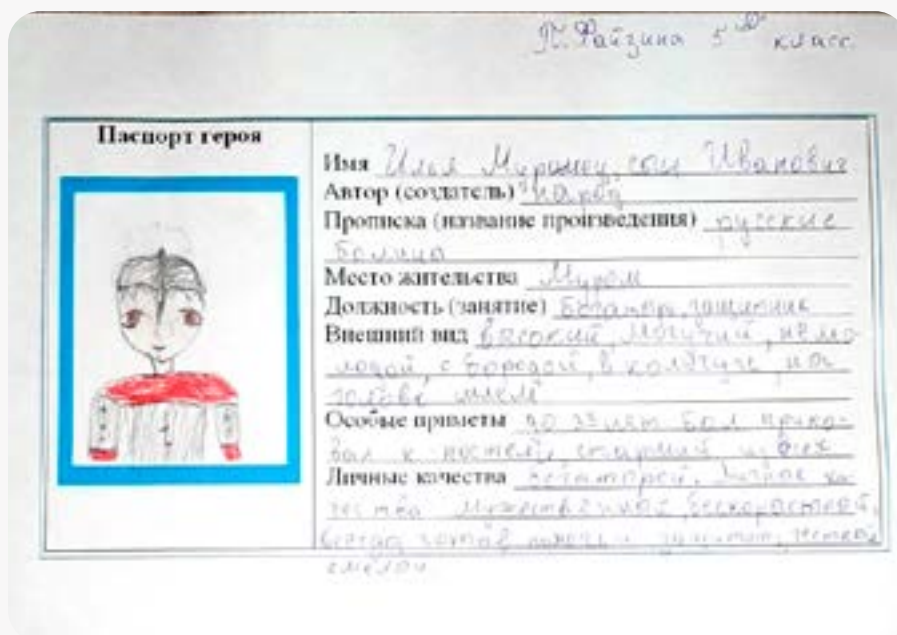 П. Файзина 5 "А" класс.
Паспорт героя
Имя Илья Муромец, сын Иванович
Автор (создатель) народ
Прописка (название произведения) русские
былица
Место жительства Муром
Должность (занятие) Богатырь, защитник
Внешний вид высокий, могучий, немо
лодой, с бородой, в кольчуге, на
голове шлем
Особые приметы до 33 лет был прико-
ван к постели, старший из всех
Личные качества богатырей. Личное ка
чество мужественной, бескорыстной,
всегда готов помочь и защитит, честной
смелой